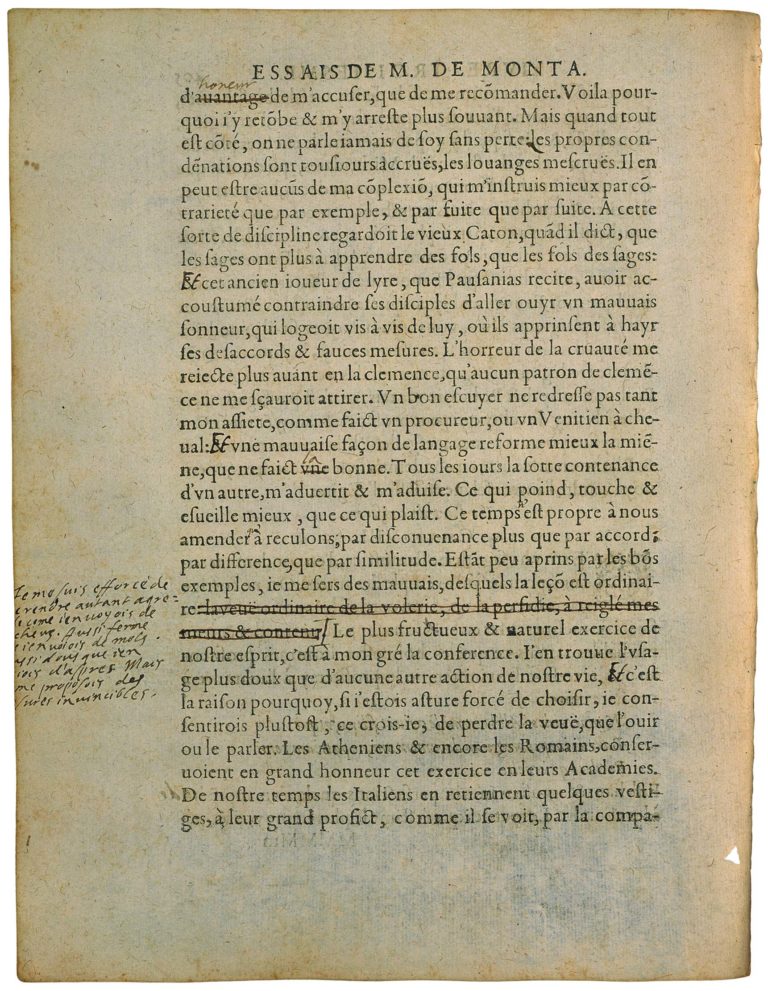 ESSAIS DE M. DE MONTA.
honeur
d'auantage de m'accuser, que de me recõmander. Voila pour-
quoi i'y retõbe & m'y arreste plus souuant. Mais quand tout
est cõté, on ne parle iamais de soy sans perte: les propres con-
dẽnations sont tousiours accruës, les louanges mescruës. Il en
peut estre aucũs de ma cõplexiõ, qui m'instruis mieux par cõ-
trarieté que par exemple, & par fuite que par suite. A cette
sorte de discipline regardoit le vieux Caton, quãd il dict, que
les sages ont plus à apprendre des fols, que les fols des sages:
Et cet ancien ioueur de lyre, que Pausanias recite, auoir ac-
coustumé contraindre ses disciples d'aller ouyr vn mauuais
sonneur, qui logeoit vis à vis de luy, où ils apprinsent à hayr
ses desaccords & fauces mesures. L'horreur de la cruauté me
reiecte plus auãnt en la clemence, qu'aucun patron de clemẽ-
ce ne me sçauroit attirer. Vn bon escuyer ne redresse pas tant
mon assiete, comme faict vn procureur, ou vn Venitien à che-
ual: Et vne mauuaise façon de langage reforme mieux la miẽ-
ne, que ne faict vne la bonne. Tous les iours la sotte contenance
d'vn autre, m'aduertit & m'aduise. Ce qui poind, touche &
esueille mieux, que ce qui plaist. Ce temps est propre à nous
amender à reculons, par disconuenance plus que par accord;
par difference, que par similitude. Estãt peu aprins par les bõs
exemples, ie me sers des mauuais, desquels la leçõ est ordinai-
re: la veuë ordinaire de la volerie, de la perfidie, à reiglé mes
meurs & contenu Le plus fructueux & naturel exercice de
nostre esprit, c'est à mon gré la conference. I'en trouue l'vsa-
ge plus doux que d'aucune autre action de nostre vie, Et c'est
la raison pourquoy, si i'estois asture forcé de choisir, ie con-
sentirois plustost, ce crois-ie, de perdre la veuë, que l'ouir
ou le parler. Les Atheniens & encore les Romains, conser-
uoient en grand honneur cet exercice en leurs Academies.
De nostre temps les Italiens en retiennent quelques vesti-
ges, à leur grand profict, comme il se voit, par la compa-
Ie me suis efforcé de
rendre autant agre-
able que i'en voyois de
fascheus. Aussi ferme
que i'en voiois de mols.
Aussi dous que i'en
voiois d'aspres Mais
ie me proposois des
mesures inuincibles.